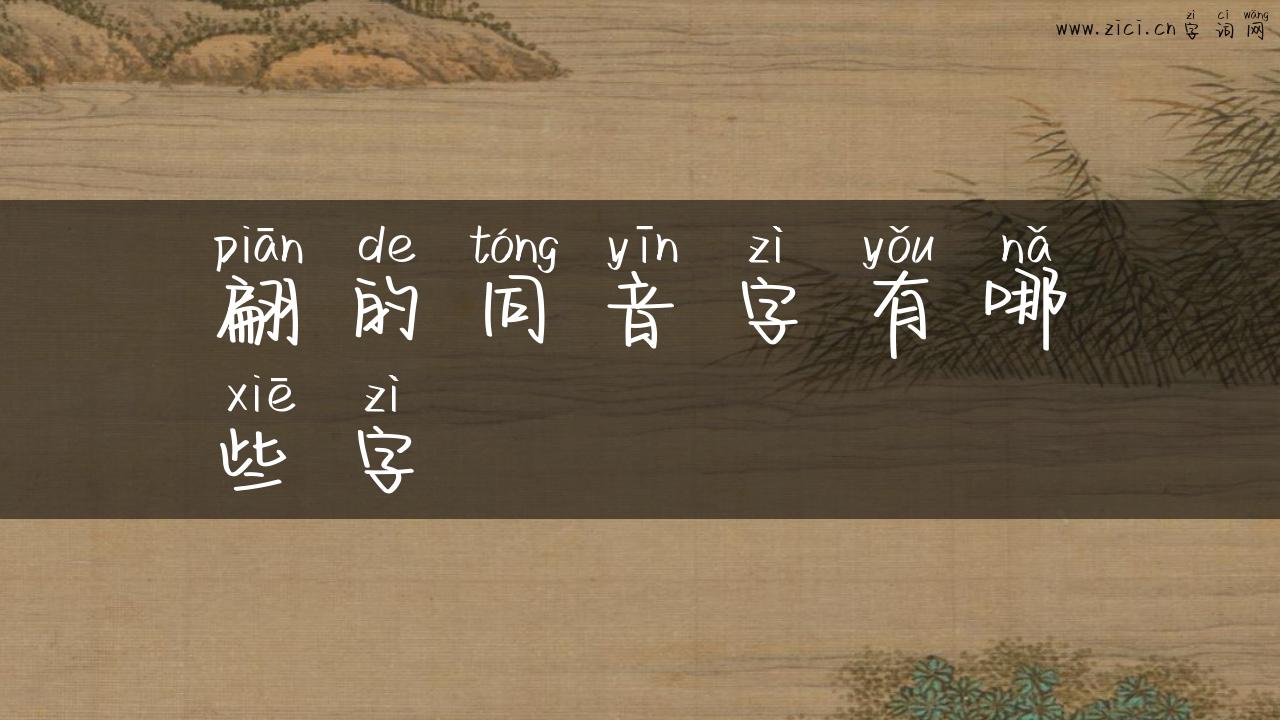 zì cí wǎng
www.zici.cn字词网
piān de tóng yīn zì yǒu nǎ
翩的同音字有哪
xiē zì
些字